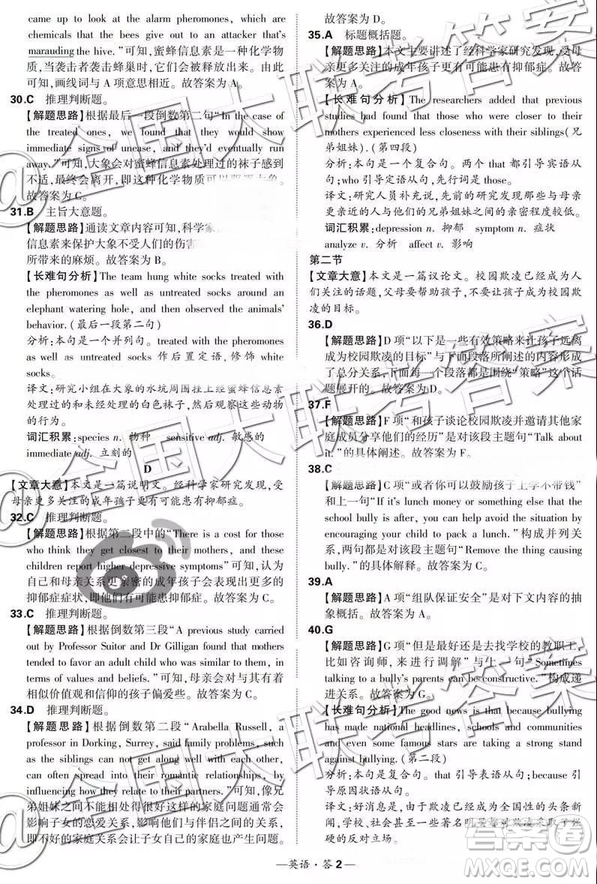 came up to look at the alarm pheromones, which are
chemicals that the bees give out to an attacker that's
marauding the hive."可知,蜜蜂信息素是一种化学物
质,当袭击者袭击蜂巢时,它们会释放出这种化学物质。
可知,画线词与 A 项意思相近。故答案为 A。
30.C 推理判断题。
【解题思路】根据最后一段倒数第二句"In the case of
the treated ones, we found that they would show
immediate signs of unease, and they'd eventually run
away."可知,大象会对蜜蜂信息素处理过的袜子感到
不适,最终会离开,即这种化学物质可以
故答案为 C。
31.B 主旨大意题。
【解题思路】通读文章内容可知,科学家
信息素来保护大象不受人们的伤害
所带来的麻烦。故答案为 B。
【长难句分析】The team hung white socks treated with
the pheromones as well as untreated socks around an
elephant watering hole, and then observed the animals'
behavior.(最后一段第二句)
分析:本句是一个并列句。treated with the pheromones
as well as untreated socks 作后置定语,修饰 white
socks。
译文:研究小组在大象的水坑周围挂上经蜜蜂信息素
处理过的和未经处理过的白色袜子,然后观察这些动物
的行为。
词汇积累:species n. 物种 sensitive adj. 敏感的
immediate adj. 立刻的
D
【文章大意】本文是一篇说明文。经科学家研究发现,受
母亲更多关注的成年孩子更有可能患有抑郁症。
32.C 推理判断题。
【解题思路】根据第二段中的"There is a cost for those
who think they get closest to their mothers, and these
children report higher depressive symptoms"可知,认为
和母亲关系亲密的孩子会表现出更多的抑郁
症状。故答案为 C。
33.C 推理判断题。
【解题思路】根据倒数第三段"A previous study carried
out by Professor Suitor and Dr Gilligan found that mothers
tended to favor an adult child who was similar to them in
terms of values and beliefs."可知,母亲会对与自己的价
值观和信仰一致的孩子偏爱。故答案为 C。
34.D 推理判断题。
【解题思路】根据倒数第二段"Arabella Russell, a
professor in Dorking, Surrey, said family problems, such
as the siblings not get along well with each other, can
play out in their romantic relationships, and even
influencing how they relate to their mates."可知,像兄
弟姐妹之间相处得很不好这样的家庭问题通常会影
响子女的恋爱关系,影响他们对伴侣的态度,即家庭
关系会让子女自己的家庭也产生问题。故答案为 D。
故答案为 D。
35.A 标题概括题。
【解题思路】本文主要讲述了经科学家研究发现,受母
亲更多关注的成年孩子更有可能患有抑郁症。故答案
为 A。
【长难句分析】The researchers added that previous
studies found that those who experienced more
depressive symptoms reported less closeness with their siblings(兄
弟姐妹).(第四段)
分析:本句是一个复合句。两个 that 引导宾语从
句;who 引导定语从句,先行词为 those。
译文:研究人员补充说,先前的研究发现那些与母
亲更亲密的人与他们的兄弟姐妹之间的亲密程度较低。
词汇积累:depression n. 抑郁 symptom n. 症状
analysis n. 分析 affect v. 影响
第二节
【文章大意】本文是一篇议论文。校园欺凌已经成为人
们关注的话题,父母要帮助孩子,不要让孩子成为校园欺
凌的目标。
36.D
【解题思路】D 项"以下是一些有效策略来让孩子远离
成为校园欺凌的目标"与下面的各段落所阐述的内容形
成了总分关系,即下面的每一个段落都是围绕"策略"这个话
题展开的。故答案为 D。
37.F
【解题思路】F 项"和孩子谈论校园欺凌并邀请其他家
庭成员分享他们的经历"是对该段主题句"Talk about
it."的具体阐述。故答案为 F。
38.C
【解题思路】C 项"或者你可以鼓励孩子上学不带钱"
和上一句"If it's lunch money or something else that the
school bully is after, you can help avoid the situation by
encouraging your child to pack a lunch."构成并列关
系,两句都是对该段主题句"Remove the thing causing
bullying."的具体阐述。故答案为 C。
39.A
【解题思路】A 项"组队保证安全"是对下文内容的抽
象概括。故答案为 A。
40.G
【解题思路】G 项"但是最好还是去找学校的教职工,
比如咨询师,来与学生一起"与上一句"Sometimes
talking to a bully's parents can be constructive."构成递
进关系。故答案为 G。
【长难句分析】The good news is that because bullying
has made national headlines, schools and communities
and even some famous stars are taking a strong stand
against bullying.(第二段)
分析:本句是一个复合句。that 引导表语从句;because
引导原因状语从句。
译文:好消息是,由于欺凌已经成为全国性的头条新
闻,学校、社会甚至一些著名的明星都采取了强
硬的反对立场。
—英语·答 2—
@全国大联考答案